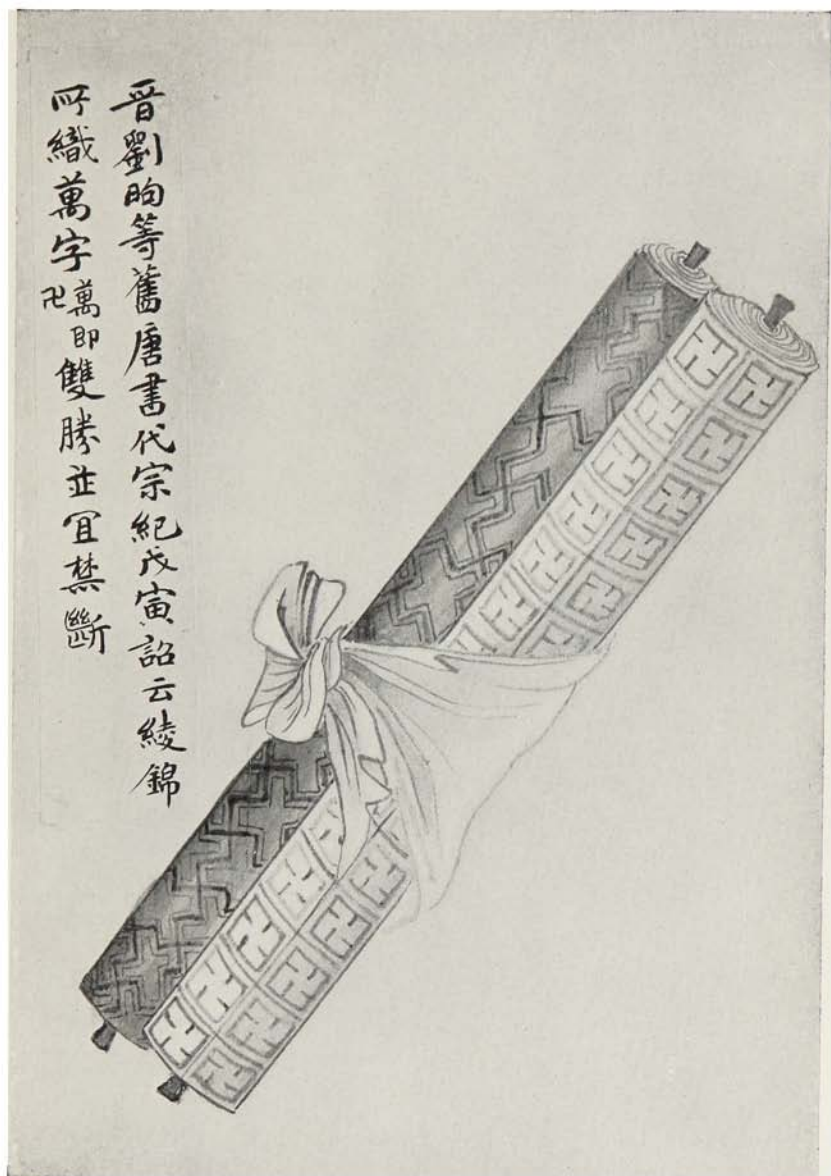 晋劉昫等舊唐書代宗紀戊寅詔云綾錦
所織萬字萬即卍雙勝並宜禁斷